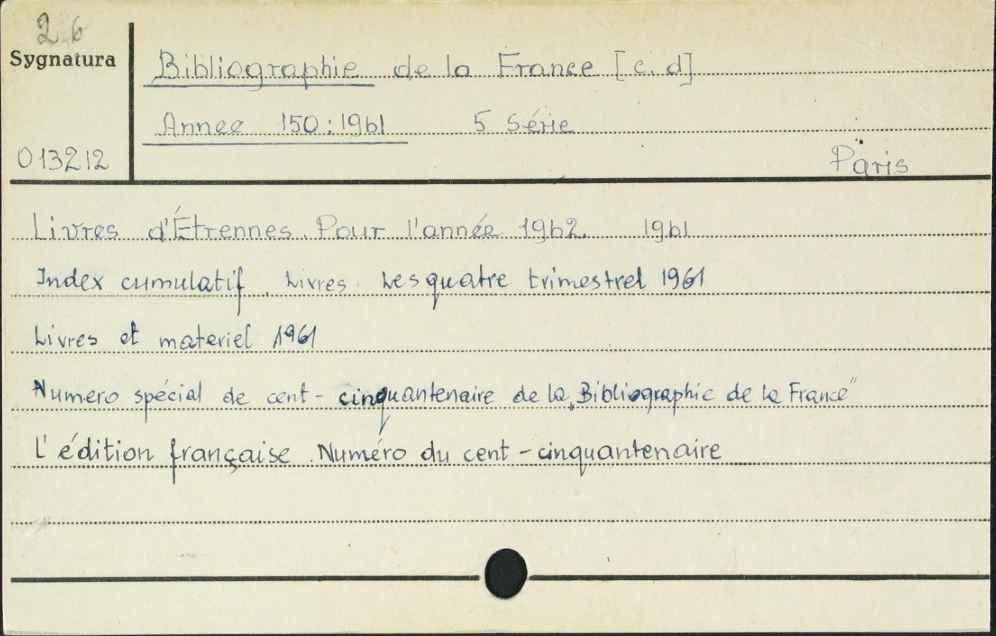 2 6
Sygnatura
Bibliographie de la France [c. d]
Annee 150:1961 5 Série
013212
Paris
Livres d'Étrennes. Pour l'année 1962. 1961
Index cumulatif. Livres. Les quatre trimestrel 1961
Livres et materiel 1961
Numero spécial de cent-cinquantenaire de la „Bibliographie de la France"
L'édition française. Numéro du cent-cinquantenaire